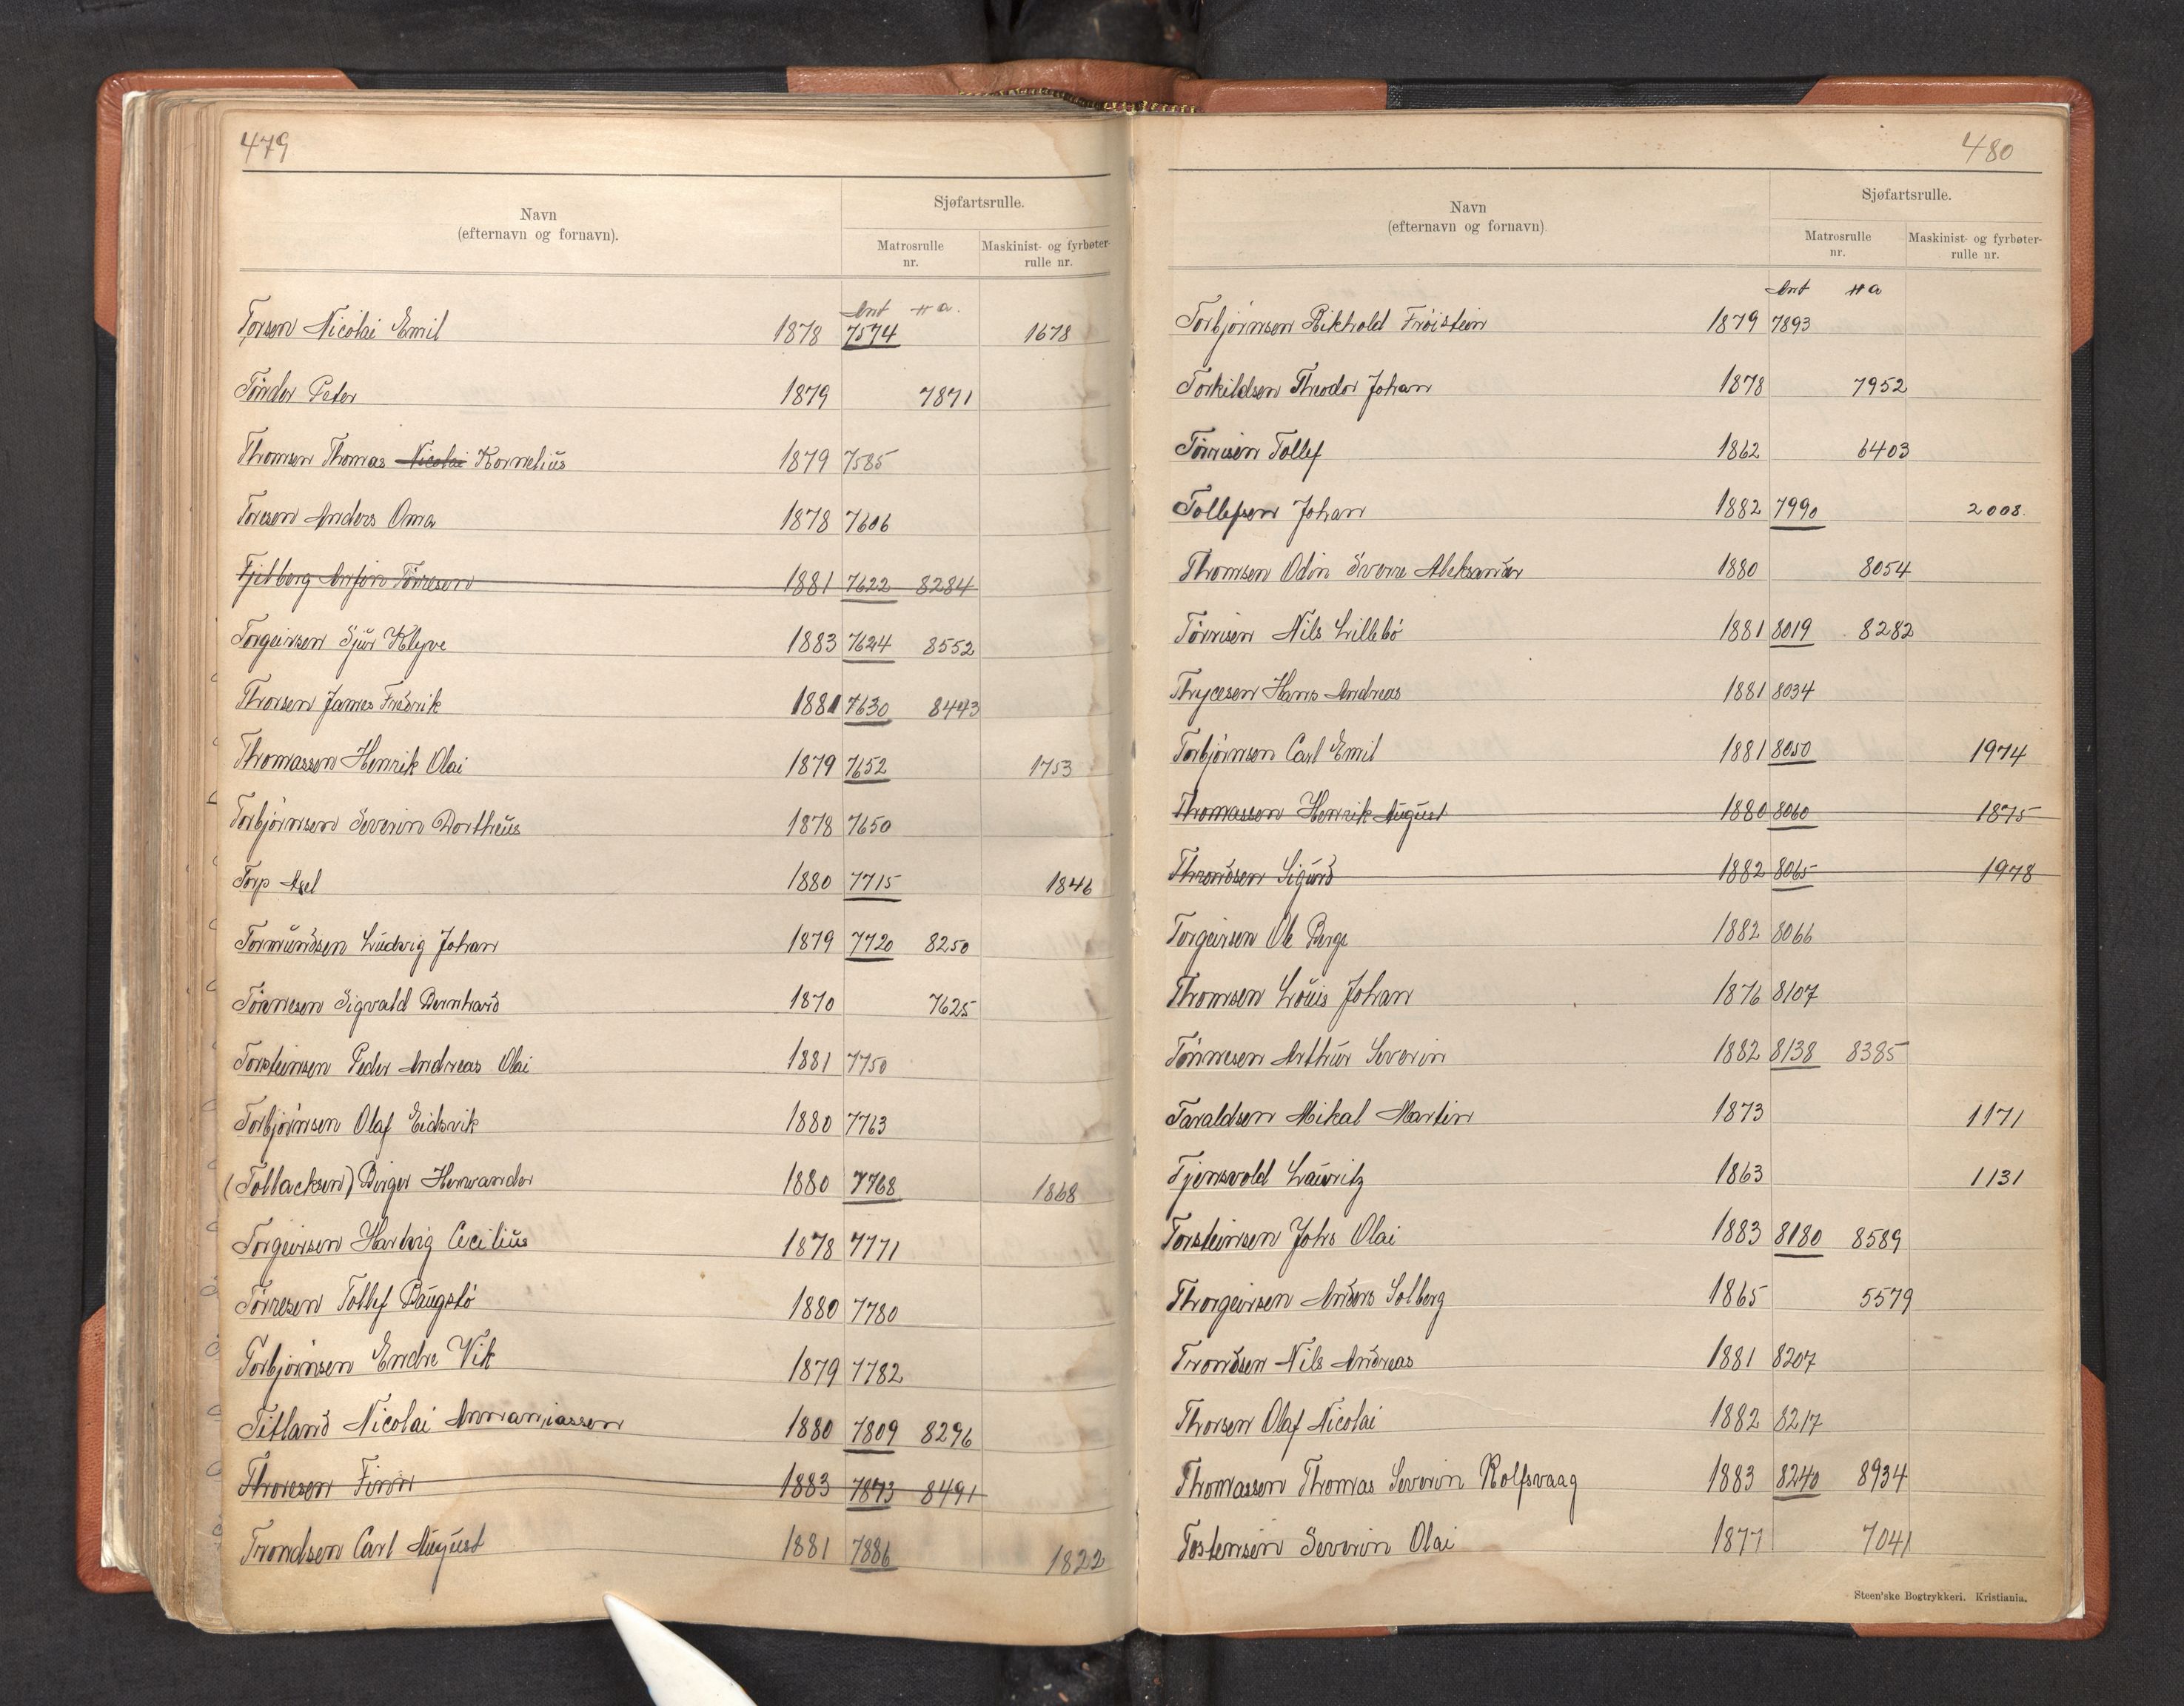 479
Navn
(efternavn og fornavn).
Sjøfartsrulle.
Matrosrulle
nr.
Maskinist- og fyrbøter-
rulle nr.
Ant H a.
Torsen Nicolai Emil 1878 7574 1678
Tönder Peter 1879 7871
Thomsen Thomas Nicolai Kornelius 1879 7585
Toresen Anders Oma 1878 7606
Fjelberg Anfin Törresen 1881 7622 8284
Torgeirsen Sjur Kleyve 1883 7624 8552
Thorsen James Fredrik 1881 7630 8443
Thomassen Henrik Olai 1879 7652 1753
Torbjörnsen Severin Dortheus 1878 7650
Torp Axel 1880 7715 1846
Tormundsen Ludvig Johan 1879 7720 8250
Tönnesen Sigvald Bernhard 1870 7625
Torsteinsen Peder Andreas Olai 1881 7750
Torbjörnsen Olaf Eidsvik 1880 7763
(Tollacksen) Birger Herwander 1880 7768 1868
Torgeirsen Hartvig Cecilius 1878 7771
Törresen Tollef Baugstö 1880 7780
Torbjörnsen Endre Vik 1879 7782
Titland Nicolai Annaniassen 1880 7809 8296
Thoresen Finn 1883 7873 8491
Trondsen Carl August 1881 7886 1822
480
Navn
(efternavn og fornavn)
Sjøfartsrulle.
Matrosrulle
nr.
Maskinist- og fyrbøter-
rulle nr.
Ant H a
Torbjörnsen Rikhold Fröistein 1879 7893
Torkildsen Theodor Johan 1878 7952
Törrisen Tollef 1862 6403
Tollefsen Johan 1882 7990 2008.
Thomsen Odin Sverre Aleksander 1880 8054
Törrisen Nils Lillebö 1881 8019 8282
Thygesen Hans Andreas 1881 8034
Torbjörnsen Carl Emil 1881 8050 1974
Thomassen Henrik August 1880 8060 1875
Throndsen Sigurd 1882 8065 1978
Torgeirsen Ole Berge 1882 8066
Thomsen Louis Johan 1876 8107
Tönnesen Arthur Severin 1882 8138 8385
Taraldsen Mikal Martin 1873 1171
Tjensvold Lauritz 1863 1131
Torsteinsen Johs Olai 1883 8180 8589
Thorgeirsen Anders Solberg 1865 5579
Trondsen Nils Andreas 1881 8207
Thorsen Olaf Nicolai 1882 8217
Thomassen Thomas Severin Rolfsvaag 1883 8240 8934
Tostensen Severin Olai 1877 7041
Steen'ske Bogtrykkeri. Kristiania.